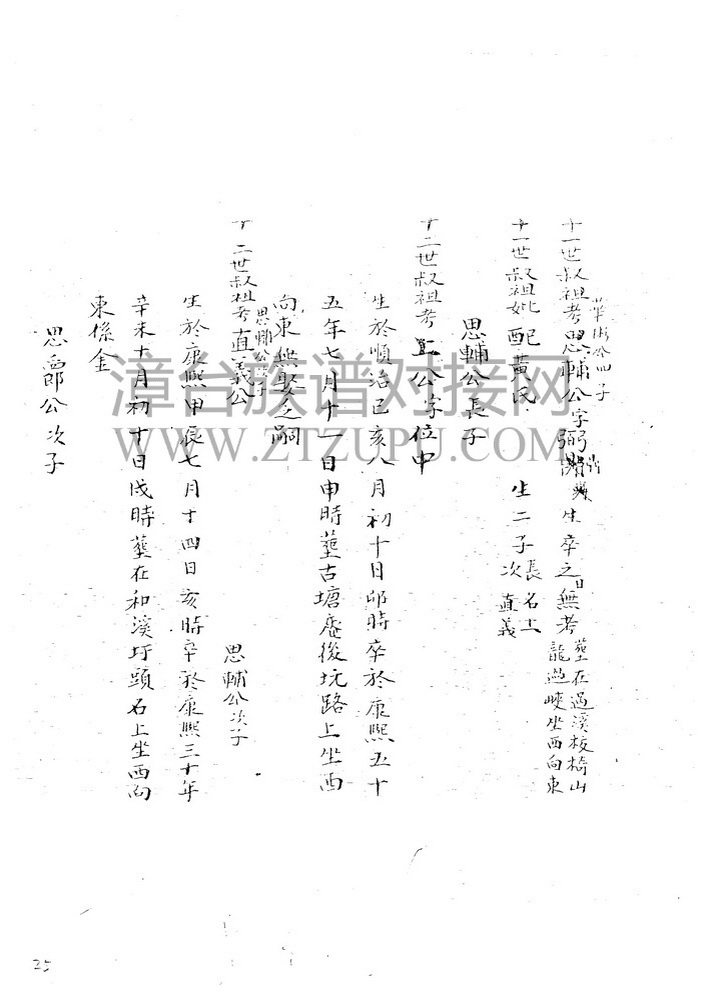 華崇公四子
十一世叔祖考思輔公字弼 生卒之日無考
墓在過溪枝椅山
龍過峽坐西向東
十一世叔祖妣配黃氏 生二子
長名
次直義
思輔公長子
十二世叔祖考 公字位中
生於順治己亥八月初十日卯時卒於康熙五十
五年七月十一日申時墓古塘庵後坑路上坐西
向東無娶乏嗣
思輔公次子
十二世叔祖考直義公
思輔公次子
生於康熙甲辰七月十四日亥時卒於康熙三十年
辛未十月初十日戌時墓在和溪圩頭石上坐西向
東係金
思爵公次子
漳台族谱对接网
WWW.ZTZUPU.COM
25